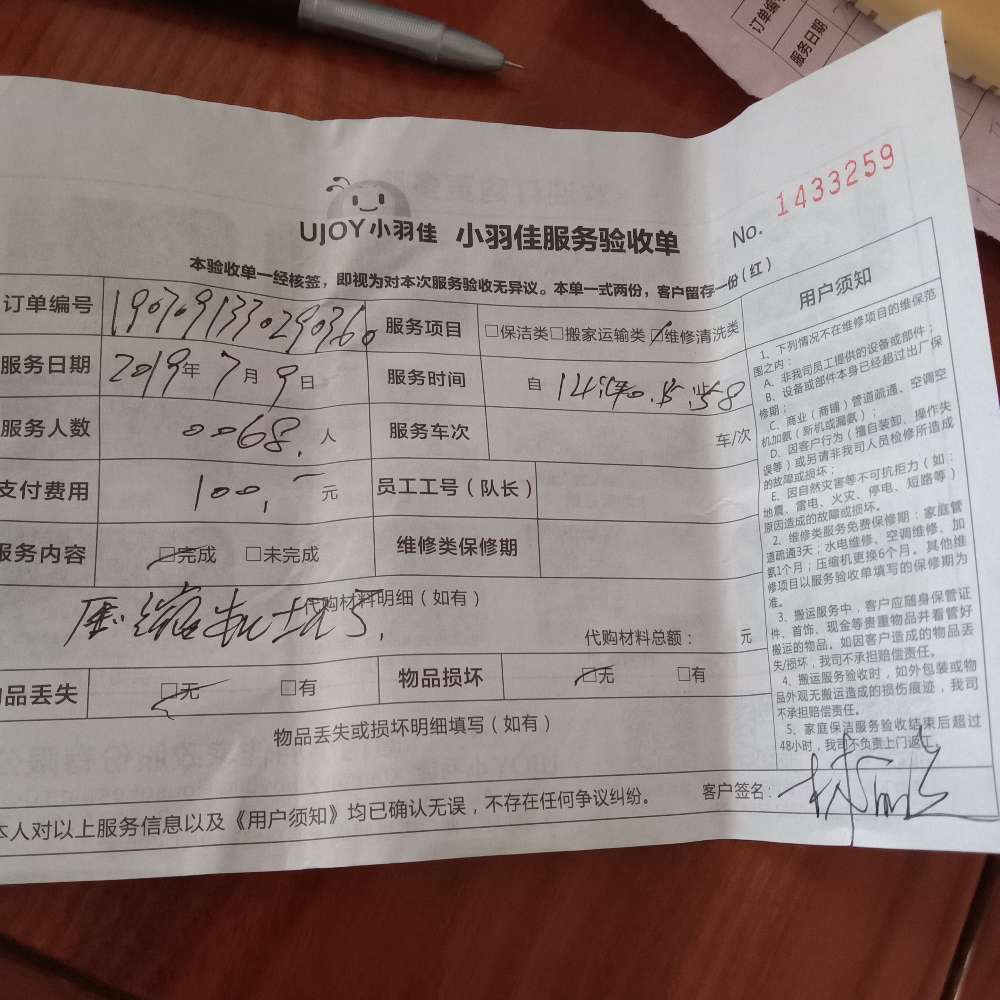 订单编号
服务日期
UJOY小羽佳 小羽佳服务验收单
No. 1433259
本验收单一经核签，即视为对本次服务验收无异议。本单一式两份，客户留存一份（红）
订单编号
服务项目 □保洁类□搬家运输类☑维修清洗类
服务日期 2019年7月9日
服务时间 自
服务人数 0068.人
服务车次 车/次
支付费用 100.-元
员工工号（队长）
服务内容 ☑完成 □未完成
维修类保修期
代购材料明细（如有）
压缩机坏了.
代购材料总额： 元
物品丢失 ☑无 □有
物品损坏 ☑无 □有
物品丢失或损坏明细填写（如有）
本人对以上服务信息以及《用户须知》均已确认无误，不存在任何争议纠纷。
客户签名：
用户须知
1、下列情况不在维修项目的维保范
围之内：
A、非我司员工提供的设备或部件；
B、设备或部件本身已经超过出厂保
修期；
C、商业（商铺）管道疏通、空调空
机加氨（新机或漏氨）；
D、因客户行为（擅自装卸、操作失
误等）或另请非我司人员检修所造成
的故障或损坏；
E、因自然灾害等不可抗拒力（如：
地震、雷电、火灾、停电、短路等）
原因造成的故障或损坏。
2、维修类服务免费保修期：家庭管
道疏通3天；水电维修、空调维修、加
氨1个月；压缩机更换6个月。其他维
修项目以服务验收单填写的保修期为
准。
3、搬运服务中，客户应随身保管证
件、首饰、现金等贵重物品并看管好
搬运的物品。如因客户造成的物品丢
失/损坏，我司不承担赔偿责任。
4、搬运服务验收时，如外包装或物
品外观无搬运造成的损伤痕迹，我司
不承担赔偿责任。
5、家庭保洁服务验收结束后超过
48小时，我司不负责上门返工。